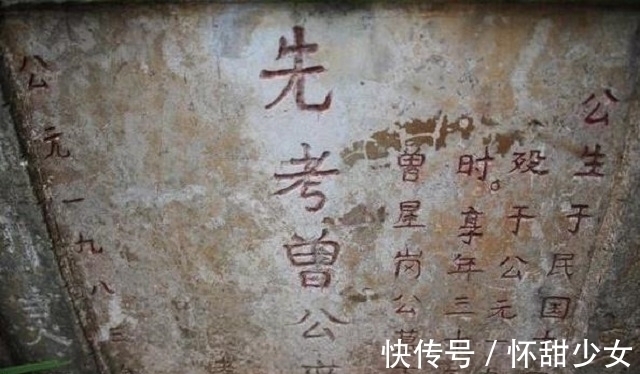 公生于民国
殁于公元
时。享年三
曾星岗公
先考曾公
公元一九八
灵
快传号 / 怀甜少女